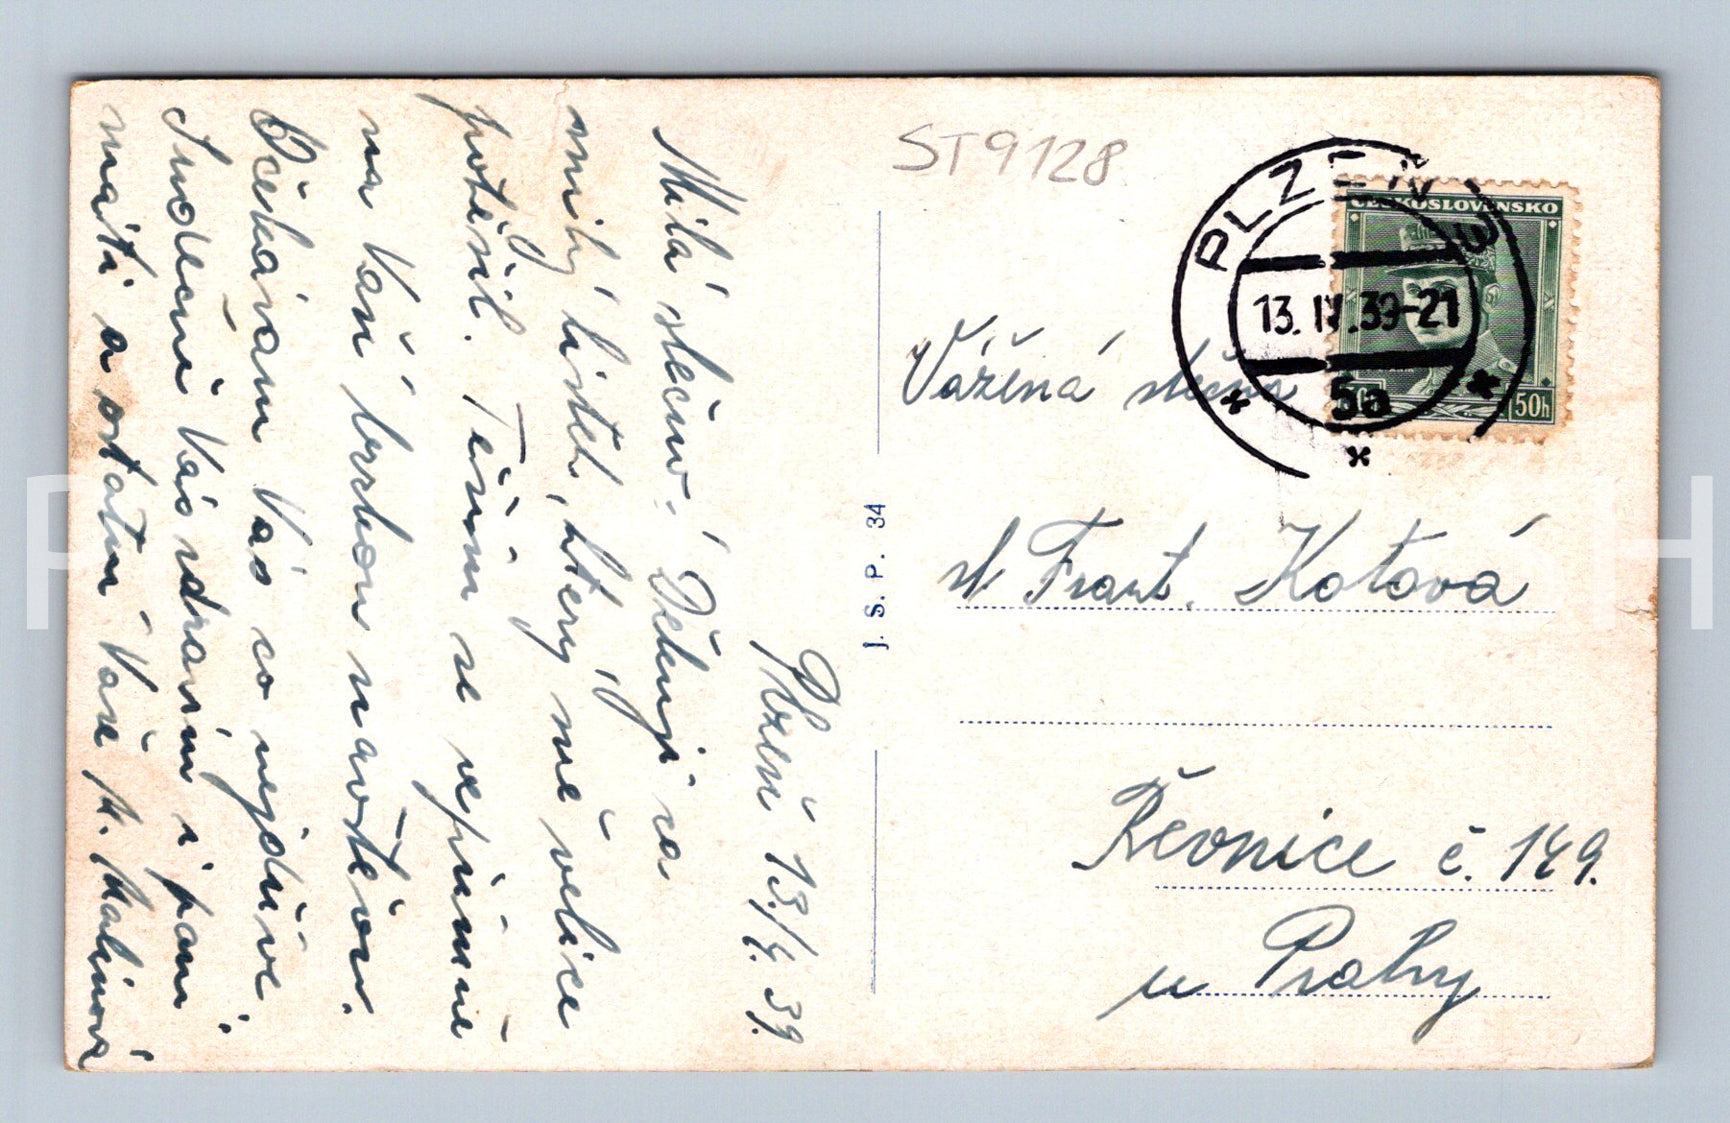 Plzeň 13./4. 39.
Milá slečno! Děkuji za
milý lístek, který mě velice
potěšil. Těším se upřímně
na Vaši brzkou návštěvu.
Očekávám Vás co nejdříve.
Srdečně Vás zdravím i paní
máti a ostatní Vaše M. Malinová
ST9128
PLZEŇ
13.IV.39-21
5a
ČESKOSLOVENSKO
50h
Vážená slečna
sl. Frant. Kotová
Řevnice č. 149.
u Prahy
J. S. P. 34